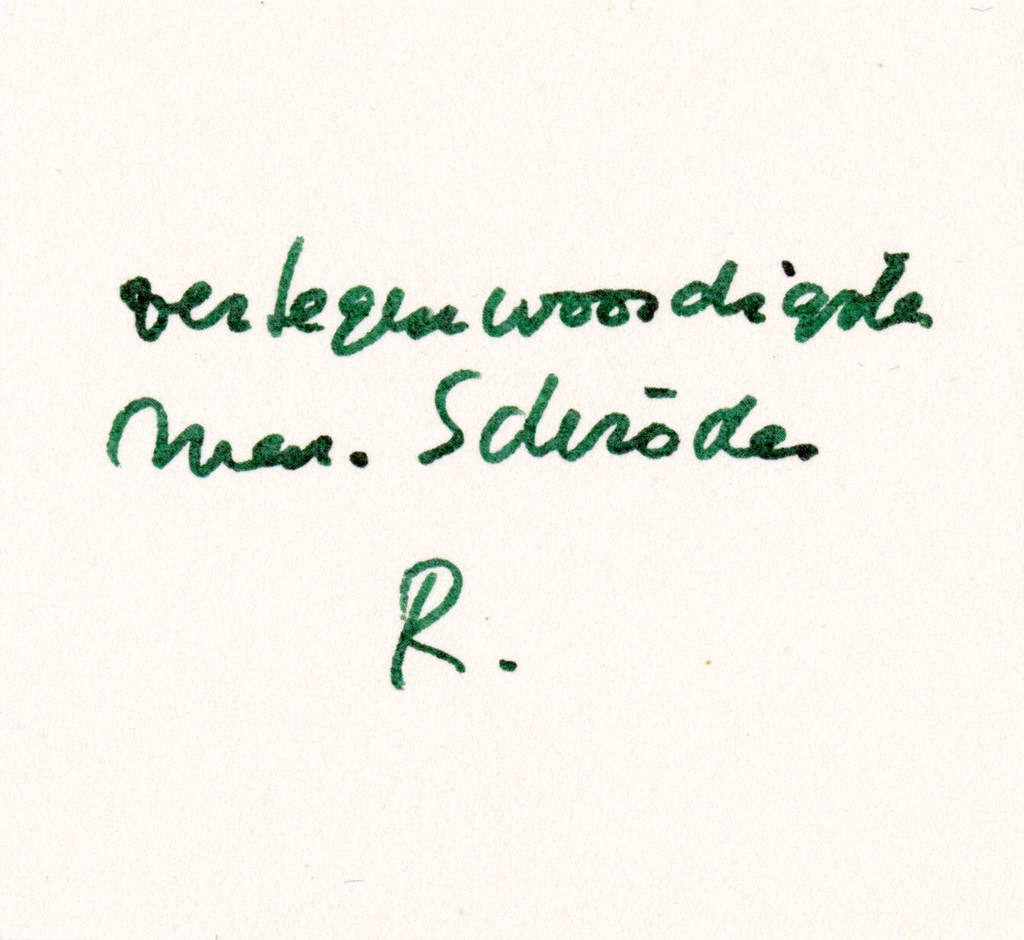 vertegenwoordigster
Mevr. Schröder
R.